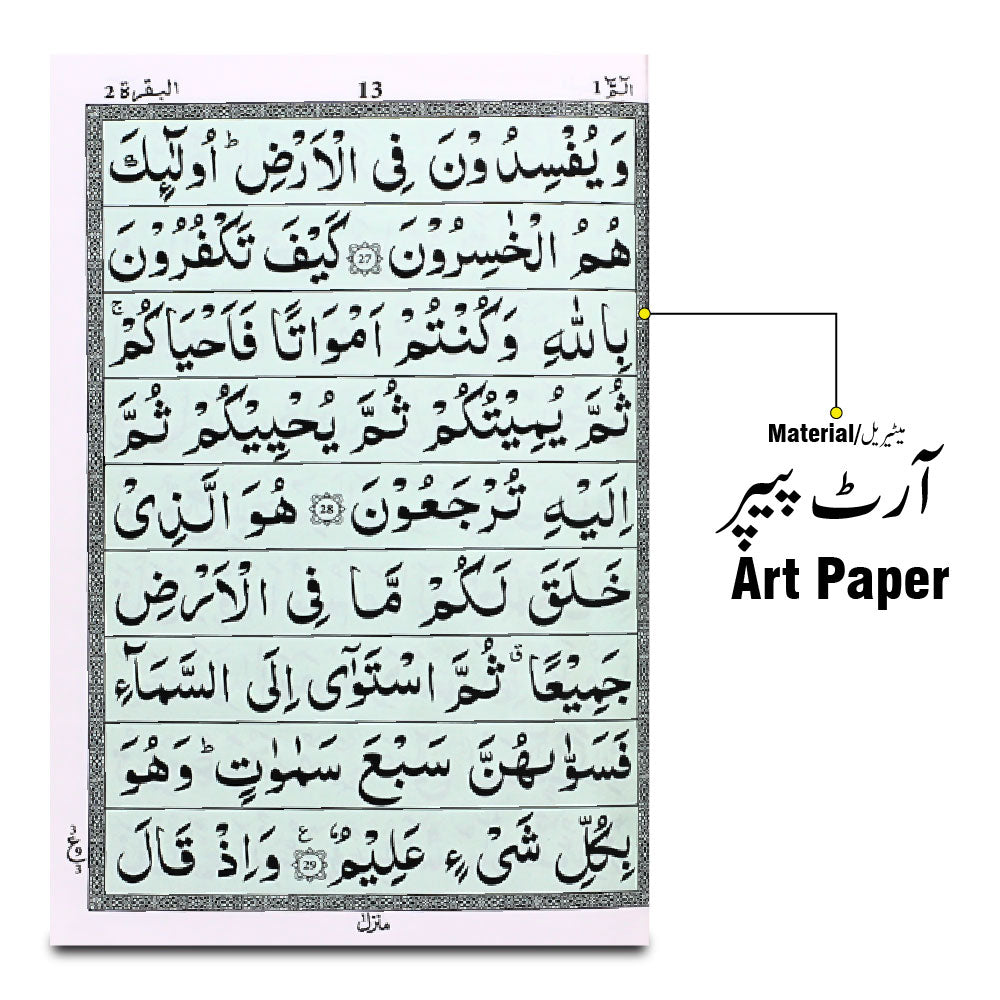 الٓمّٓ 1 13 البقرة 2
وَ یُفْسِدُوْنَ فِی الْاَرْضِ ؕ اُولٰٓئِكَ
هُمُ الْخٰسِرُوْنَ 27 كَیْفَ تَكْفُرُوْنَ
بِاللّٰهِ وَكُنْتُمْ اَمْوَاتًا فَاَحْیَاكُمْ ۚ
ثُمَّ یُمِیْتُكُمْ ثُمَّ یُحْیِیْكُمْ ثُمَّ
اِلَیْهِ تُرْجَعُوْنَ 28 هُوَ الَّذِیْ
خَلَقَ لَكُمْ مَّا فِی الْاَرْضِ
جَمِیْعًا ۗ ثُمَّ اسْتَوٰۤی اِلَی السَّمَآءِ
فَسَوّٰىهُنَّ سَبْعَ سَمٰوٰتٍ ؕ وَهُوَ
بِكُلِّ شَیْءٍ عَلِیْمٌ 29 ع وَاِذْ قَالَ
منزل
Material/میٹیریل
آرٹ پیپر
Art Paper